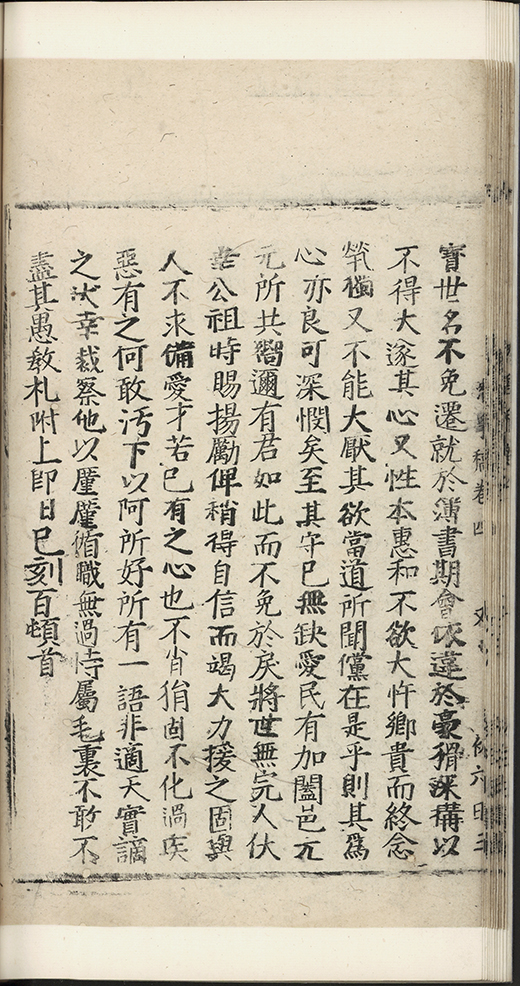 實世名不免遷就於簿書期會收違於豪猾深構以
不得大遂其心又性本惠和不欲大忤鄉貴而終念
煢獨又不能大厭其欲當道所聞儻在是乎則其爲
心亦良可深憫矣至其守已無缺愛民有加闔邑亢
元所共嚮邇有君如此而不免於戾將世無完人伏
幸公祖時賜揚勵俾稍得自信而竭大力援之固與
人不求備愛才若已有之心也不肖狷固不化過疾
惡有之何敢汚下以阿所好所有一語非適天實謫
之伏幸裁察他以廑廑循職無過恃屬毛裏不敢不
盡其愚敎札附上即日已刻百頓首
稿卷四
六